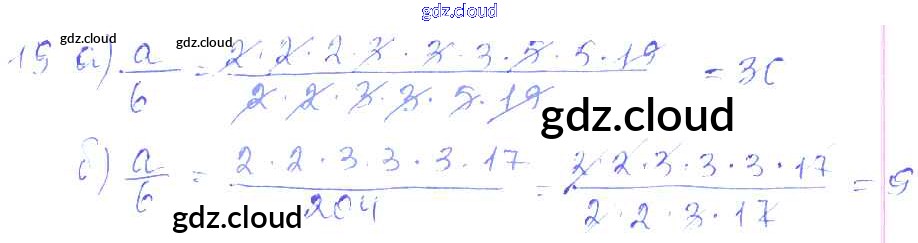 gdz.cloud
gdz.cloud gdz.cloud
19 а) a/b = 2·2·2·3·3·3·5·5·19 / 2·2·3·3·5·19 = 30
gdz.cloud
б) a/b = 2·2·3·3·3·17 / 204 = 2·2·3·3·3·17 / 2·2·3·17 = 9
gdz.cloud gdz.cloud